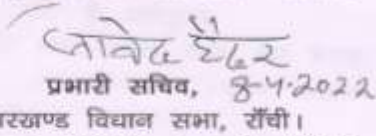 जावेद हैदर
प्रभारी सचिव, 8-4-2022
ारखण्ड विधान सभा, राँची।